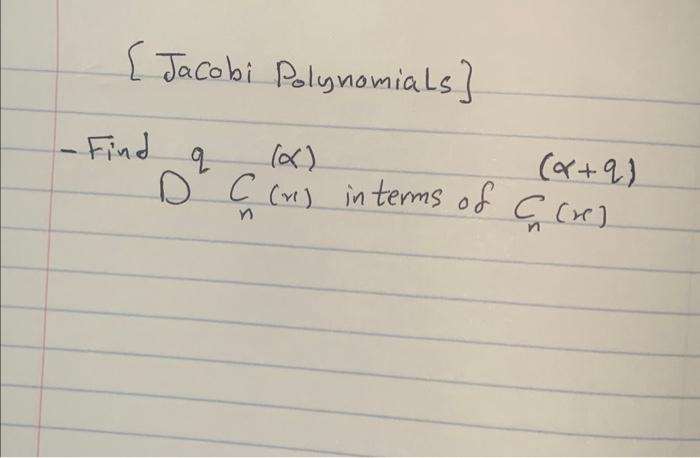 [Jacobi Polynomials]
- Find D^q C_n^(α) (x) in terms of C_n^(α+q) (x)